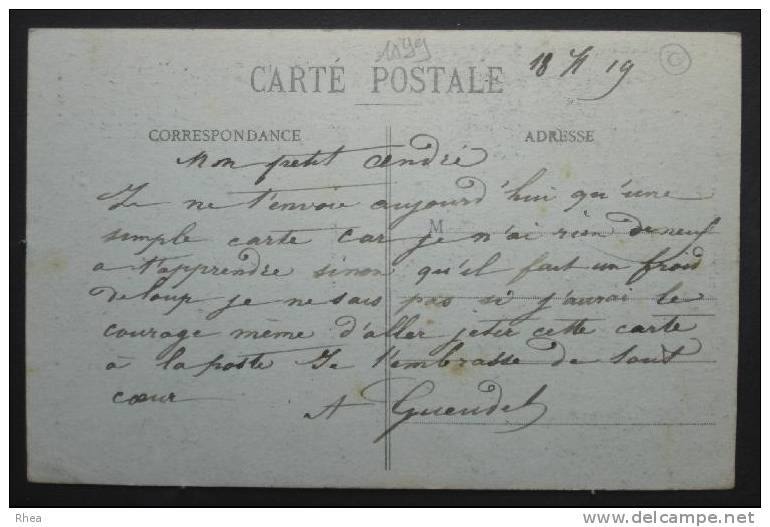 1899
18 XI 19
CARTE POSTALE
CORRESPONDANCE
ADRESSE
Mon petit André
Je ne t'envoie aujourd'hui qu'une
M
simple carte car je n'ai rien de neuf
a t'apprendre sinon qu'il fait un froid
de loup je ne sais pas si j'aurai le
courage même d'aller jeter cette carte
à la poste Je t'embrasse de tout
cœur
A Gueudet
Rhea
www.delcampe.net